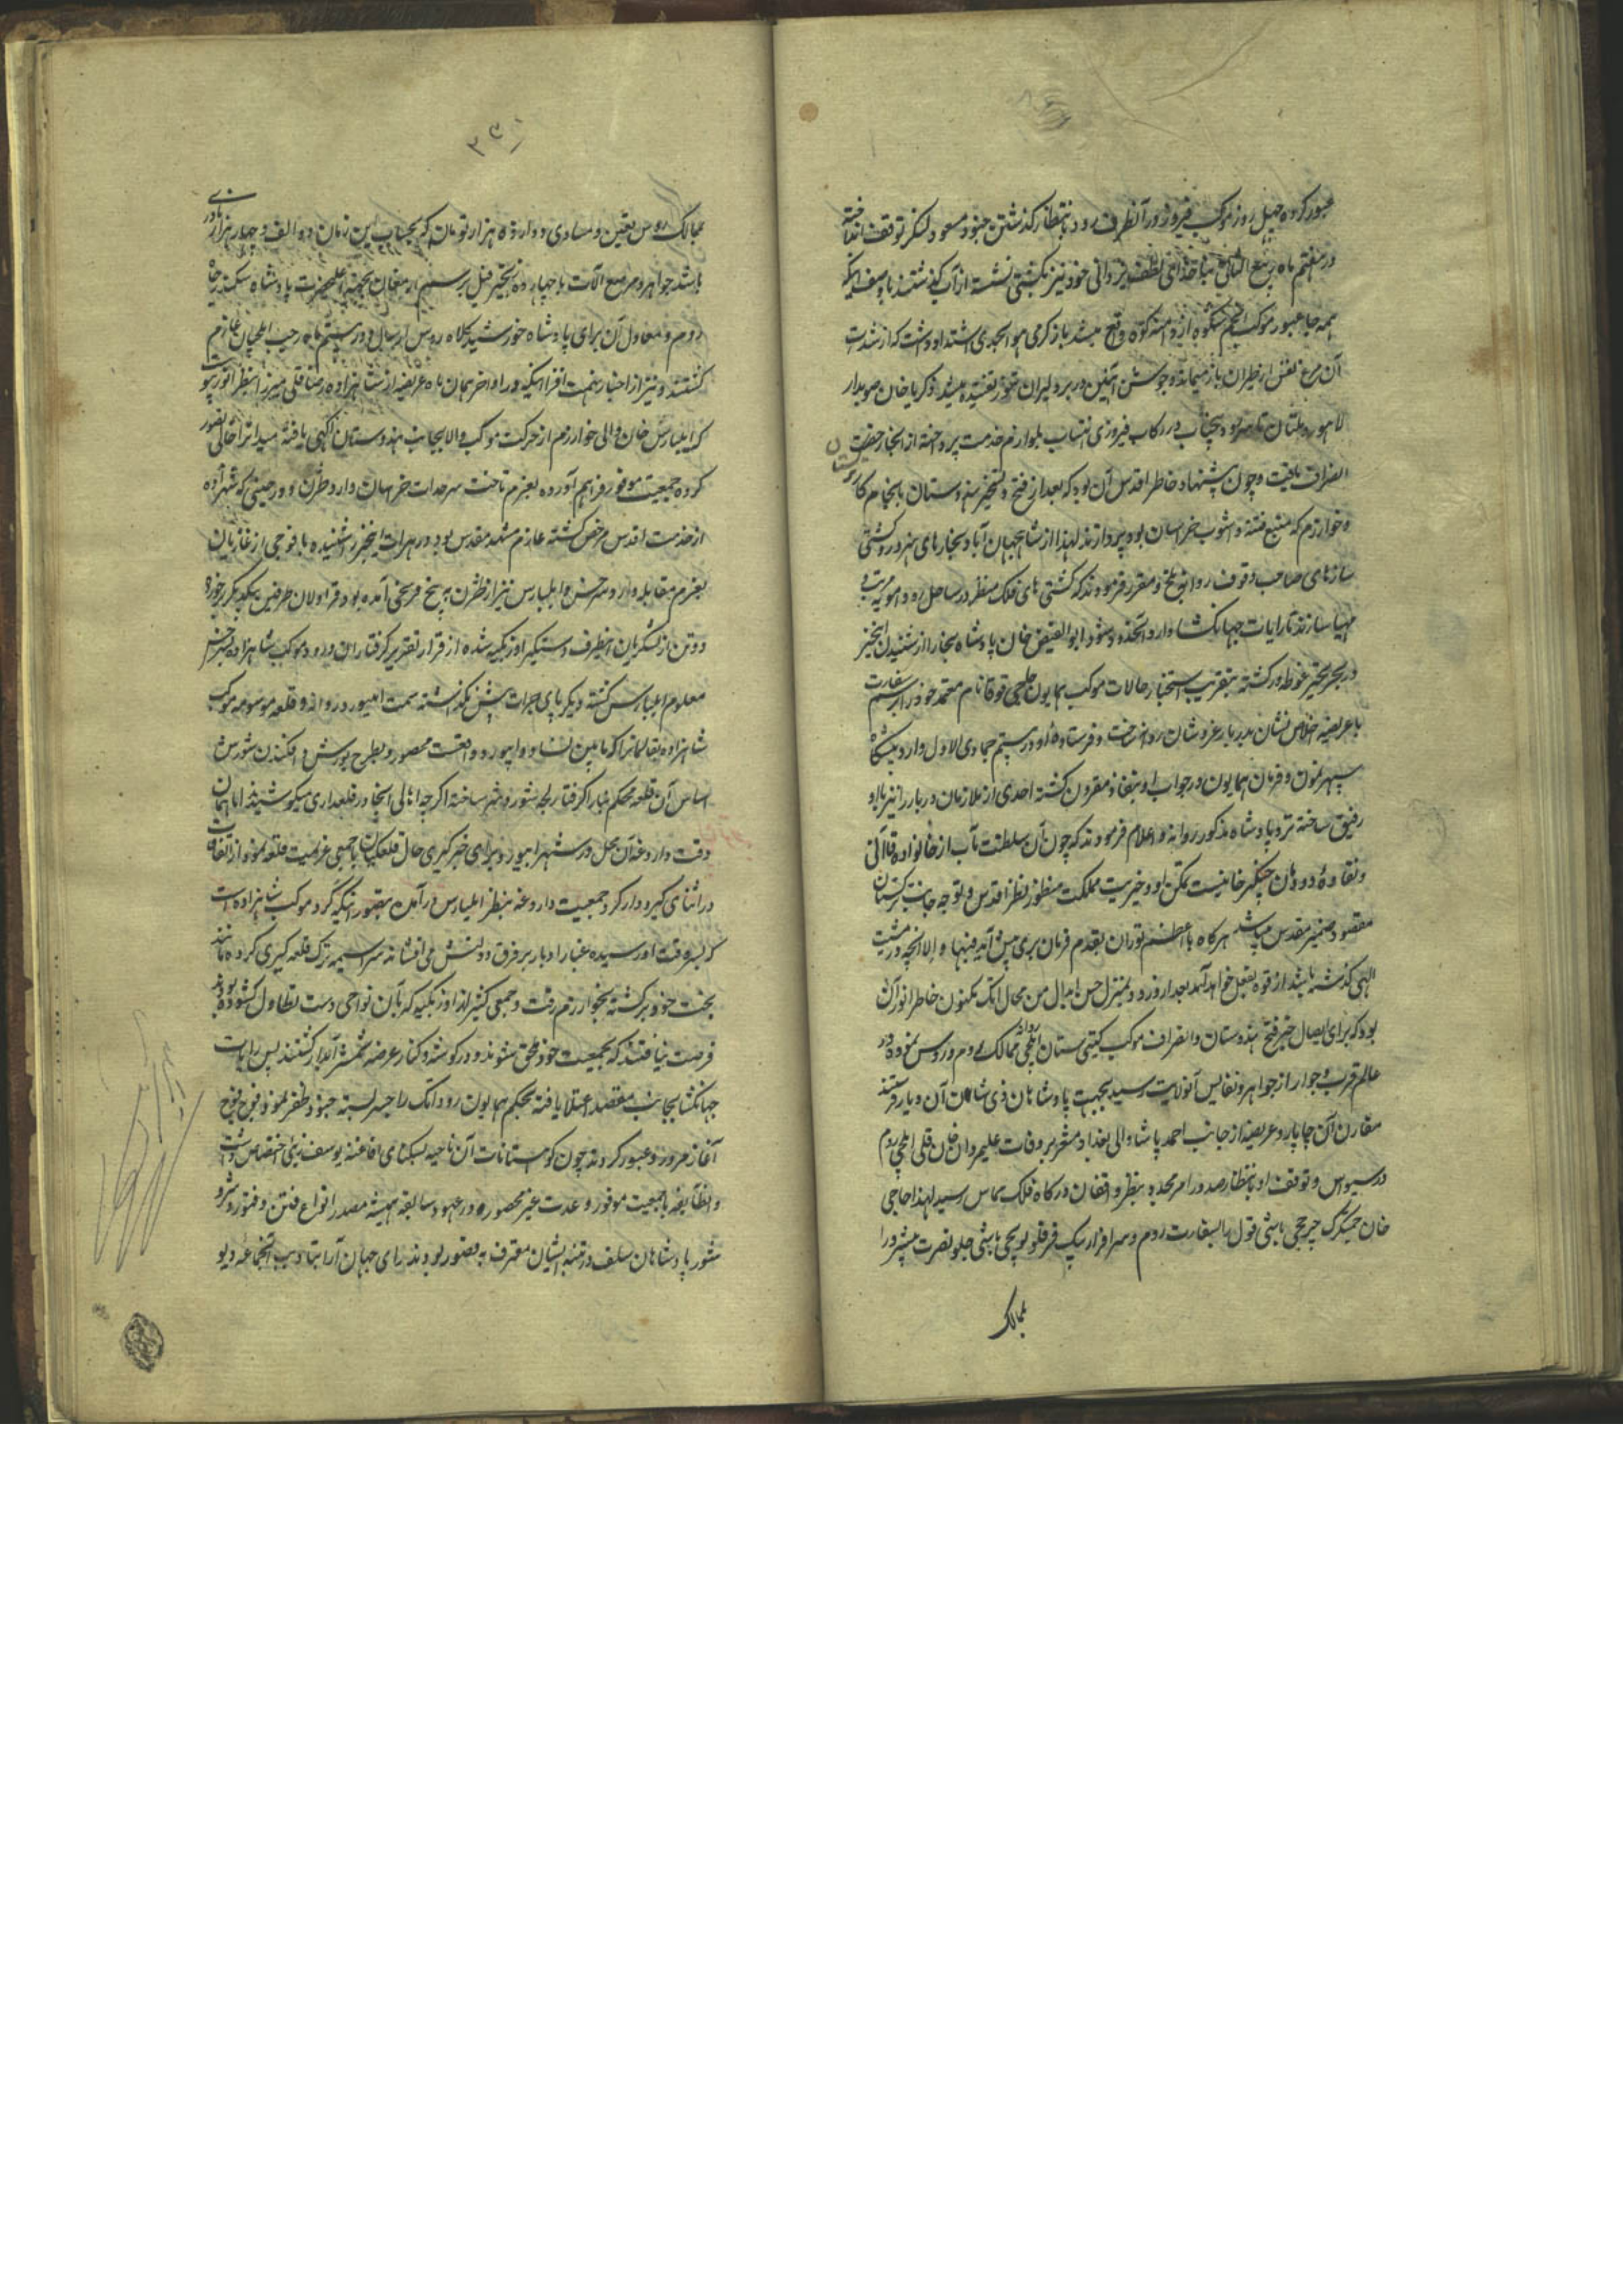 عبور کرده چهل روز موکب فیروز در آنطرف رود بانتظار گذشتن جنود مسعود لنگر توقف انداخته
در هفتم ماه ربیع الثانی بناخدائی لطف یزدانی خود نیز بکشتی نشسته از آب گذشتند با وصف اینکه
همه جا عبور موکب انجم شکوه از دامنه کوه واقع میشد باز گرمی هوا بحدی اشتداد داشت که از شدت
آن مرغ نفس از طیران باز میماند و جوشن آهنین در بر دلیران تفتیده میشد زکریا خان صوبه دار
لاهور و ملتان تا سر رود چناب در رکاب فیروزی انتساب بلوازم خدمت پرداخته از آنجا رخصت
انصراف یافت و چون پیشنهاد خاطر اقدس آن بود که بعد از فتح و تسخیر هندوستان بانجام کار
ترکستان
و خوارزم که منبع فتنه و آشوب خراسان بود پردازند لهذا از شاهجهان آباد نجارهای هنرور و کشتی
سازهای صاحب وقوف روانه بلخ و مقرر فرمودند که کشتی های فلک منظر در ساحل رود آمویه مرتب و
مهیا سازند تا رایات جهانگشا وارد آنحدود شود ابوالفیض خان پادشاه بخارا از شنیدن این خبر
در بحر تحیر غوطه ور گشته بتقریب استخبار حالات موکب همایون حاجی قوقا نام معتمد خود را برسم سفارت
با عریضه اخلاص نشان بدربار عز و شان روانه ساخت و فرستاده او در بیستم جمادی الاول وارد پیشگاه
سپهر نمون و فرمان همایون در جواب او بنفاذ مقرون گشته احدی از ملازمان دربار را نیز با او
رفیق ساخته نزد پادشاه مذکور روانه و اعلام فرمودند که چون آن سلطنت مآب از خانواده قاآنی
و نقاوهٔ دودمان چنگیز خانیست تمکن او و خیریت مملکت منظور نظر اقدس و توجه جانب ترکستان
مقصود ضمیر مقدس میباشد هرگاه با اعظم توران بقدم فرمان بری پیش آید فبها و الا آنچه در مشیت
الهی گذشته باشد از قوه بفعل خواهد آمد بعد از ورود بمنزل حسن ابدال من محال اتک مکنون خاطر انور آن
بود که برای ایصال خبر فتح هندوستان و انصراف موکب گیتی ستان ایلچی روانه ممالک روم و روس نموده در
عالم قرب و جوار از جواهر و نفایس آنولایت رسید بجهت پادشاهان ذی شان آن دیار فرستند
مقارن آن چاپار و عریضه از جانب احمد پاشا والی بغداد مشعر بر وفات علیمردان خان فیلی ایلچی روم
در سیواس و توقف او بانتظار صدور امر مجدد بنظر واقفان درگاه فلک مماس رسید لهذا حاجی
خان چمشکزک چرخچی باشی قول را بسفارت روم و سرافراز بیک قرقلو یوپچی باشی جلو نصرت پیشرو را
ممالک
۲۶۱
ممالک روس تعیین و مساوی دوازده هزار تومان که بحساب این زمان دو الف و چهار هزار نادری
باشد جواهر و مرصع آلات با چهارده زنجیر فیل برسم ارمغان بجهة اعلیحضرت پادشاه سکندر جاه
روم و معادل آن برای پادشاه خورشید کلاه روس ارسال و در بیستم ماه رجب ایلچیان عازم
گشتند و نیز از اخبار بهجت افزا اینکه در اواخر همان ماه عریضه از شاهزاده رضا قلی میرزا بنظر انور پیوست
که ایلبارس خان والی خوارزم از حرکت موکب والا بجانب هندوستان آگهی یافته میدانرا خالی تصور
کرده جمعیت موفور فراهم آورده بعزم تاخت سرحدات خراسان وارد طژن و در حینی که شهزاده
از خدمت اقدس مرخص گشته عازم مشهد مقدس بود در هرات اینخبر را شنیده با فوجی از غازیان
بعزم مقابله وارد سرخس و ایلبارس نیز از طژن به پنج فرسخی آمده بود قراولان طرفین بیکدیگر برخورده
دو تن از لشکریان اینطرف دستگیر اوزبکیه شده از قرار تقریر گرفتاران ورود موکب شاهزاده بسرخس
معلوم ایلبارس گشته دیگر پای جرات پیش نگذاشته سمت ابیورد روانه و قلعه موسومه موکب
شاهزاده بقالیانرا که مابین نسا و ابیورد واقعست محصور و بطرح یورش و افکندن شورش
اساس آن قلعه محکم بنا را گرفتار لجه شور و شر ساخته اگرچه اهالی آنجا در قلعه داری میکوشیدند اما همان
وقت داروغه آن محل در شهر ابیورد برای خبرگیری حال قلعگیان با جمعی عزیمت قلعه نمود از اتفاقات
در اثنای گیرودار گرد جمعیت داروغه بنظر ایلبارس در آمده بتصور اینکه گرد موکب شاهزاده است
که بسر وقت او رسیده غبار ادبار بر فرق دولتش می افشاند سراسیمه ترک قلعه گیری کرده مانند
بخت خود برگشته بخوارزم رفت و جمعی کثیر از اوزبکیه که بآن نواحی دست تطاول گشوده بودند
فرصت نیافتند که بجمعیت خود ملحق شوند و در گوشه و کنار عرضه شمشیر آبدار گشتند پس رایات
جهانگشا بجانب مقصد اعتلا یافته بحکم همایون رود اتک را جسر بسته جنود ظفر نمود فوج فوج
آغاز مرور و عبور کردند چون کوهستانات آن ناحیه بسکنای افاغنه یوسف زئی اختصاص داشت
و انطایفه با جمعیت موفور و عدت غیر محصور در عهود سابقه همیشه مصدر انواع فتن و فتور و شر و
شور پادشاهان سلف در تنبیه ایشان معترف به قصور بودند رای جهان آرا بتادیب آنجماعه دیو